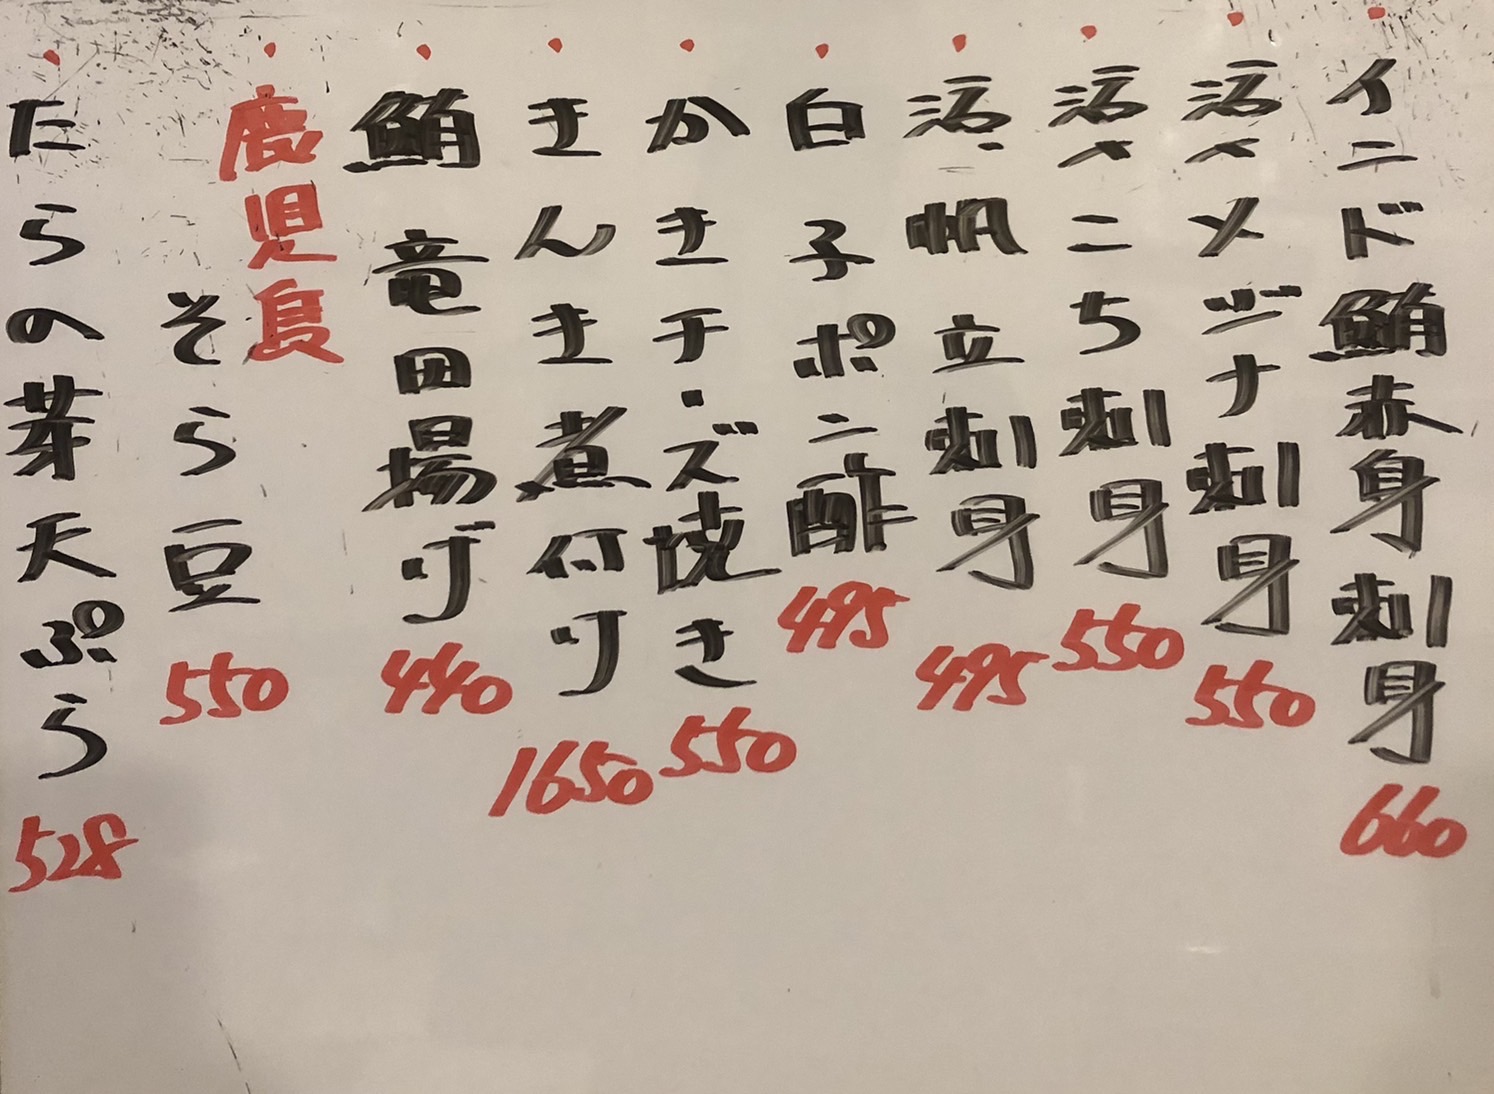 ・インド鮪赤身刺身 660
・活〆メジナ刺身 550
・活〆こち刺身 550
・活帆立刺身 495
・白子ポン酢 495
・かきチーズ焼き 550
・きんき煮付け 1650
・鮪竜田揚げ 440
・鹿児島そら豆 550
・たらの芽天ぷら 528